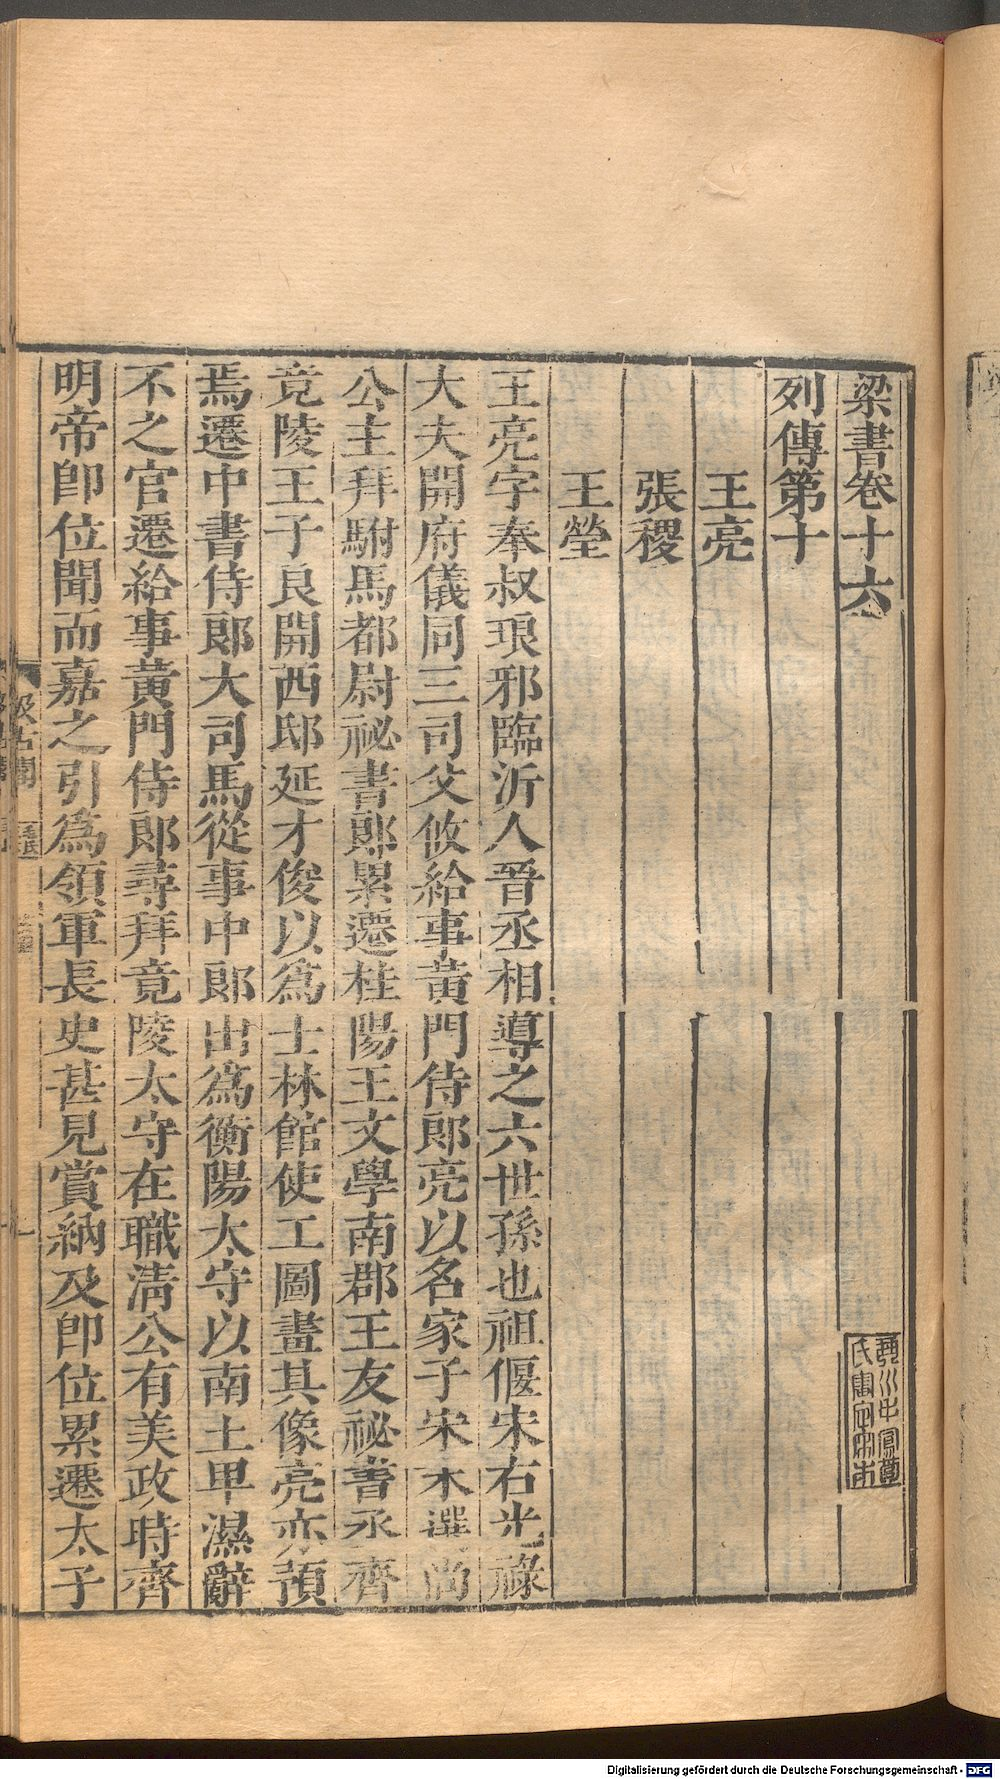 梁書卷十六
列傳第十
王亮
張稷
王瑩
王亮字奉叔琅邪臨沂人晉丞相導之六世孫也祖偃宋右光祿
大夫開府儀同三司父攸給事黃門侍郎亮以名家子宋末選尚
公主拜駙馬都尉祕書郎累遷桂陽王文學南郡王友祕書丞齊
竟陵王子良開西邸延才俊以爲士林館使工圖畫其像亮亦預
焉遷中書侍郎大司馬從事中郎出爲衡陽太守以南土卑濕辭
不之官遷給事黃門侍郎尋拜竟陵太守在職淸公有美政時齊
明帝卽位聞而嘉之引爲領軍長史甚見賞納及卽位累遷太子
汲古閣
毛氏
一
Digitalisierung gefördert durch die Deutsche Forschungsgemeinschaft - DFG